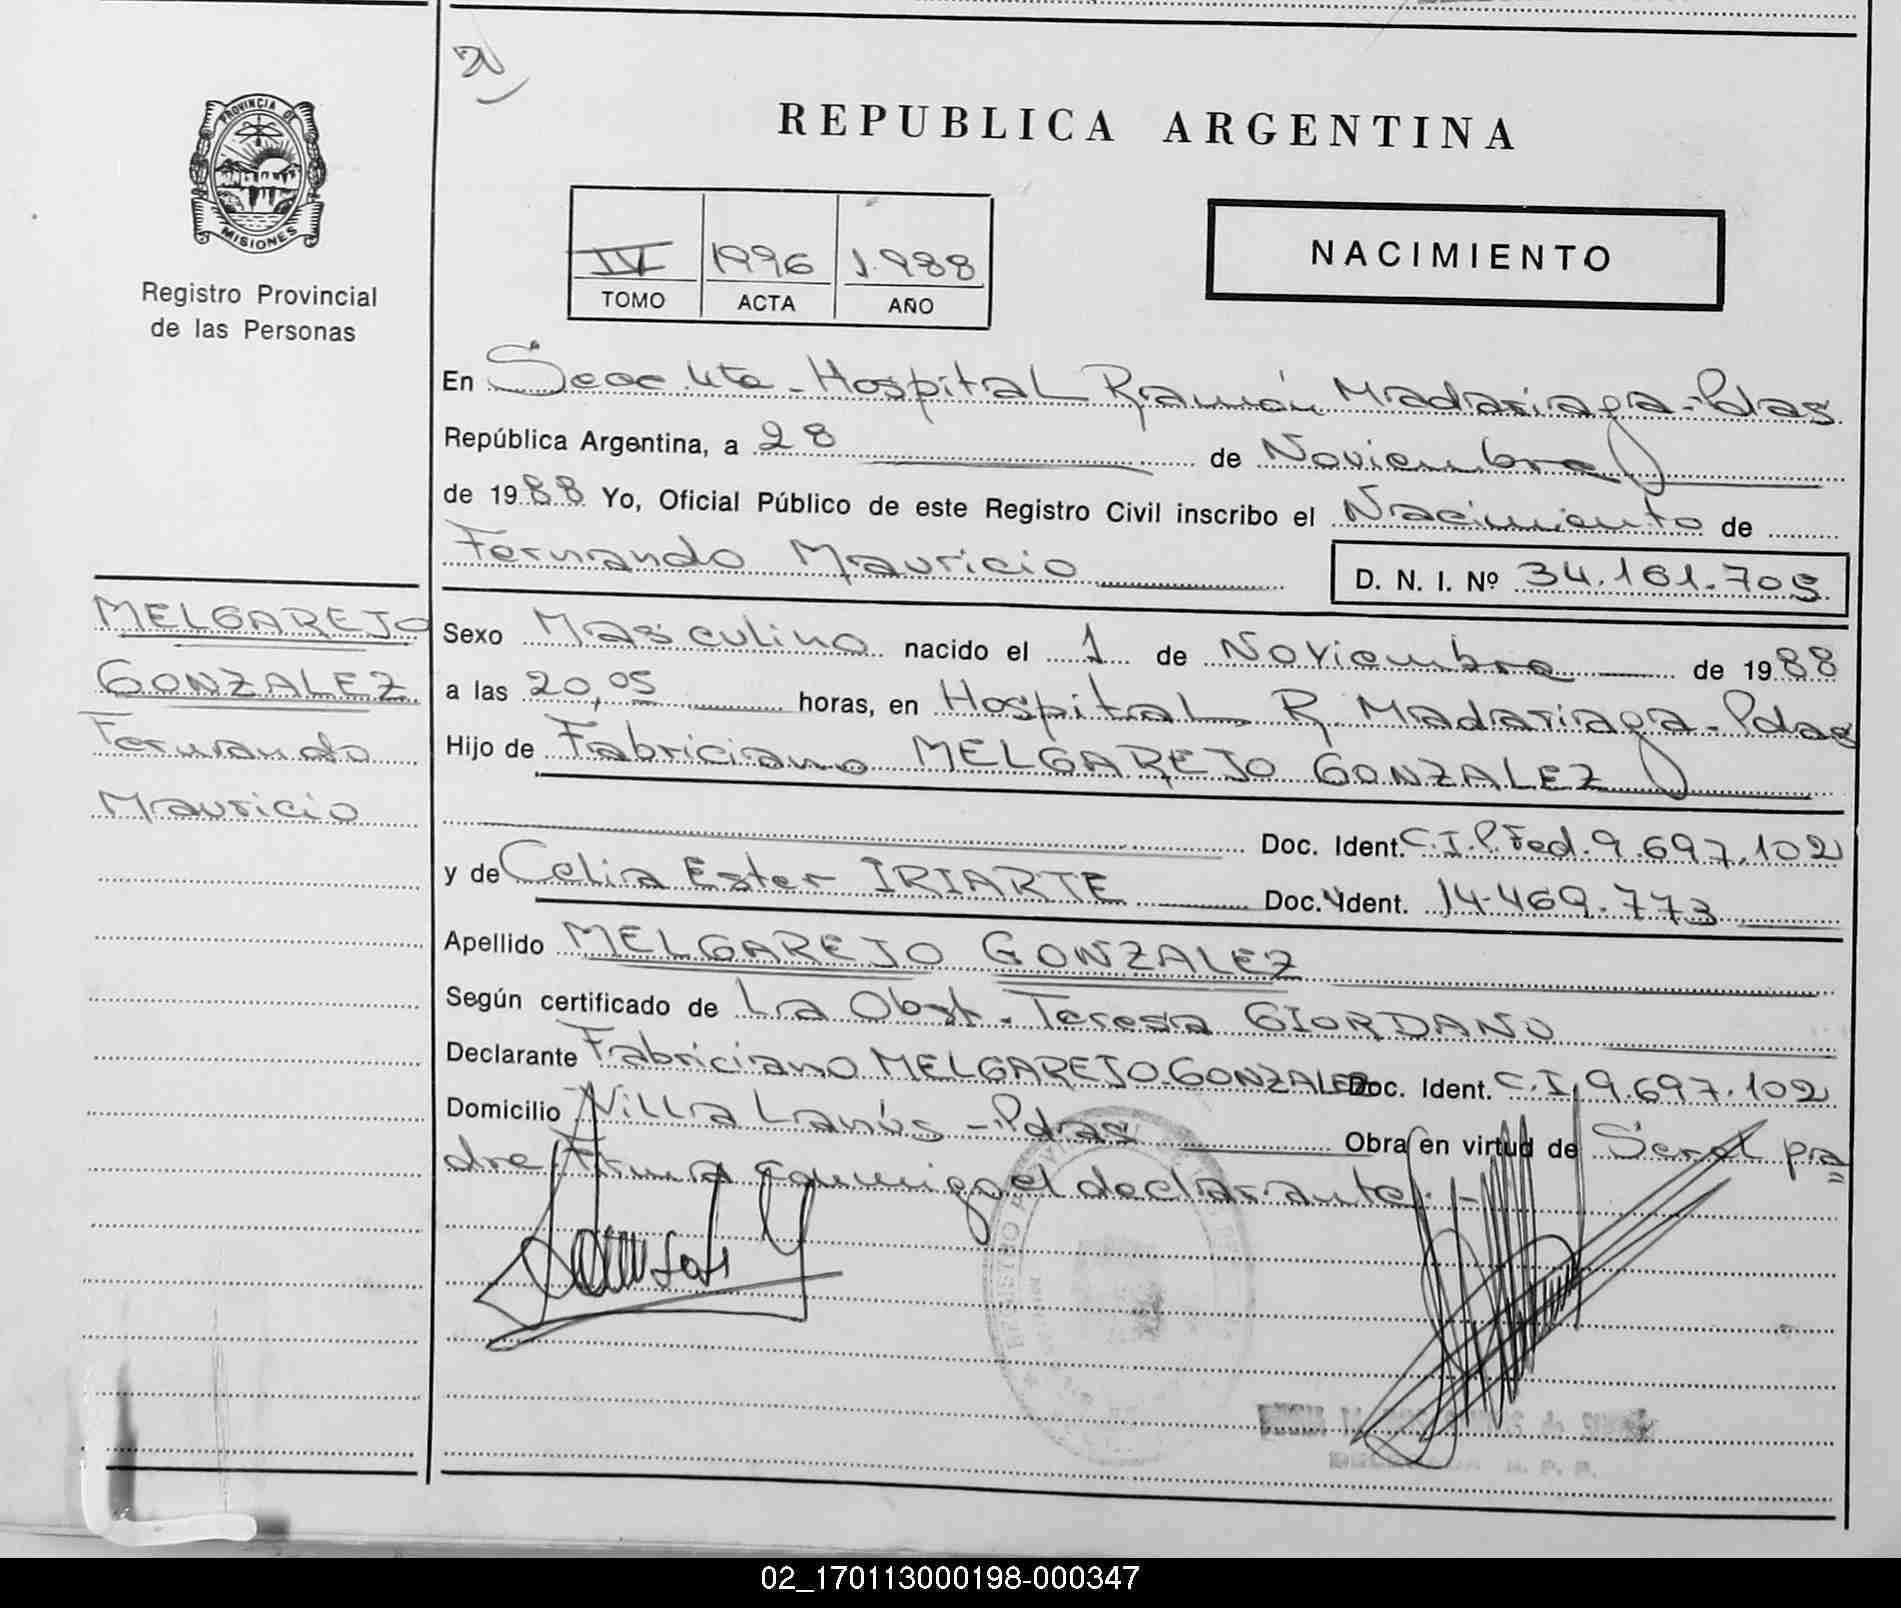 PROVINCIA DE
MISIONES
Registro Provincial
de las Personas
REPUBLICA ARGENTINA
IV 1996 1.988
TOMO ACTA AÑO
NACIMIENTO
En Secc 4ta - Hospital Ramón Madariaga - Pdas
República Argentina, a 28 de Noviembre
de 1988 Yo, Oficial Público de este Registro Civil inscribo el Nacimiento de
Fernando Mauricio
D. N. I. Nº 34.161.705
MELGAREJO
GONZALEZ
Fernando
Mauricio
Sexo Masculino nacido el 1 de Noviembre de 1988
a las 20,05 horas, en Hospital R. Madariaga - Pdas
Hijo de Fabriciano MELGAREJO GONZALEZ
Doc. Ident. C.I.P.Fed. 9.697.102
y de Celia Ester IRIARTE Doc. Ident. 14.469.773
Apellido MELGAREJO GONZALEZ
Según certificado de La Obst. Teresa GIORDANO
Declarante Fabriciano MELGAREJO GONZALEZ Doc. Ident. C.I. 9.697.102
Domicilio Villa Lanús - Pdas Obra en virtud de Ser el pa=
dre Firma conmigo el declarante.-
02_170113000198-000347